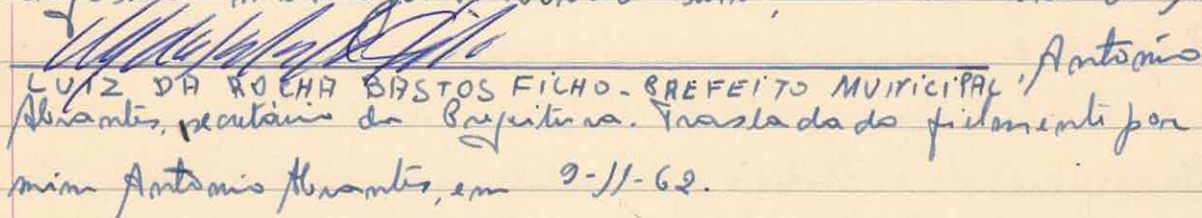 LUIZ DA ROCHA BASTOS FILHO - PREFEITO MUNICIPAL, Antonio
Abrantes, secretário da Prefeitura. Trasladado fielmente por
mim Antonio Abrantes, em 9-11-62.